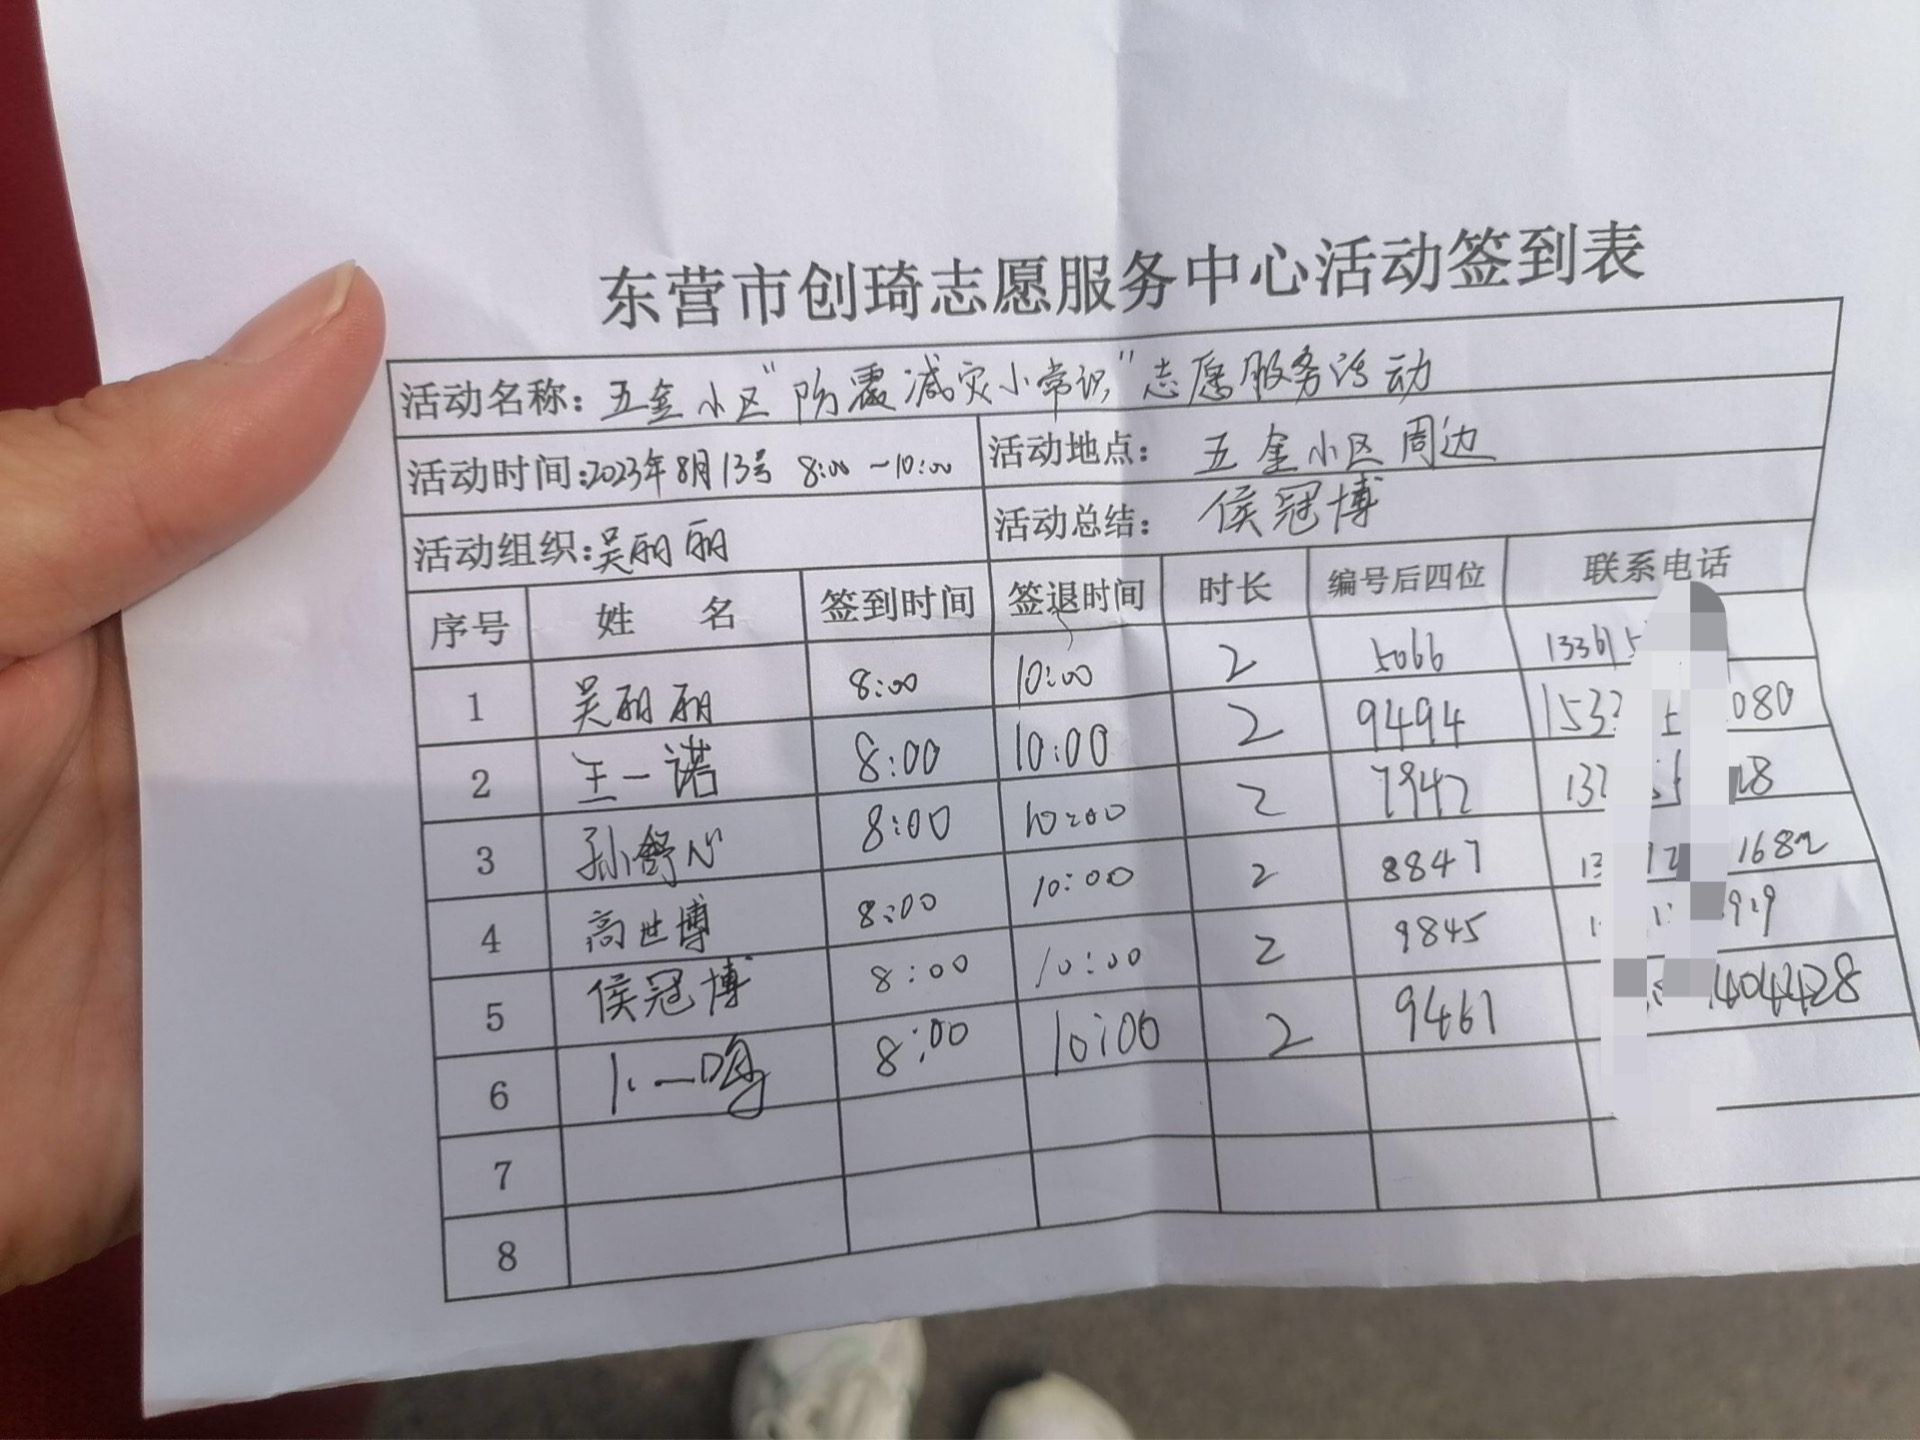 东营市创琦志愿服务中心活动签到表
活动名称：五金小区"防震减灾小常识"志愿服务活动
活动时间：2023年8月13号 8:00～10:00 活动地点：五金小区周边
活动组织：吴丽丽 活动总结：侯冠博
序号 姓 名 签到时间 签退时间 时长 编号后四位 联系电话
1 吴丽丽 8:00 10:00 2 5066 13361
2 王一诺 8:00 10:00 2 9494 153 080
3 孙舒心 8:00 10:00 2 7942 132 28
4 高世博 8:00 10:00 2 8847 13 1682
5 侯冠博 8:00 10:00 2 9845 919
6 卜一鸣 8:00 10:00 2 9461 1404428
7
8